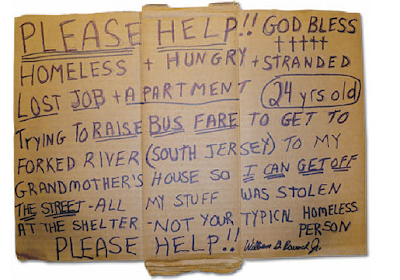 PLEASE HELP!! GOD BLESS
†††††
HOMELESS + HUNGRY + STRANDED
LOST JOB + APARTMENT 24 yrs old
TRYING TO RAISE BUS FARE TO GET TO
FORKED RIVER (SOUTH JERSEY) TO MY
GRANDMOTHER'S HOUSE SO I CAN GET OFF
THE STREET - ALL MY STUFF WAS STOLEN
AT THE SHELTER - NOT YOUR TYPICAL HOMELESS
PERSON
PLEASE HELP!! William D. Jr.